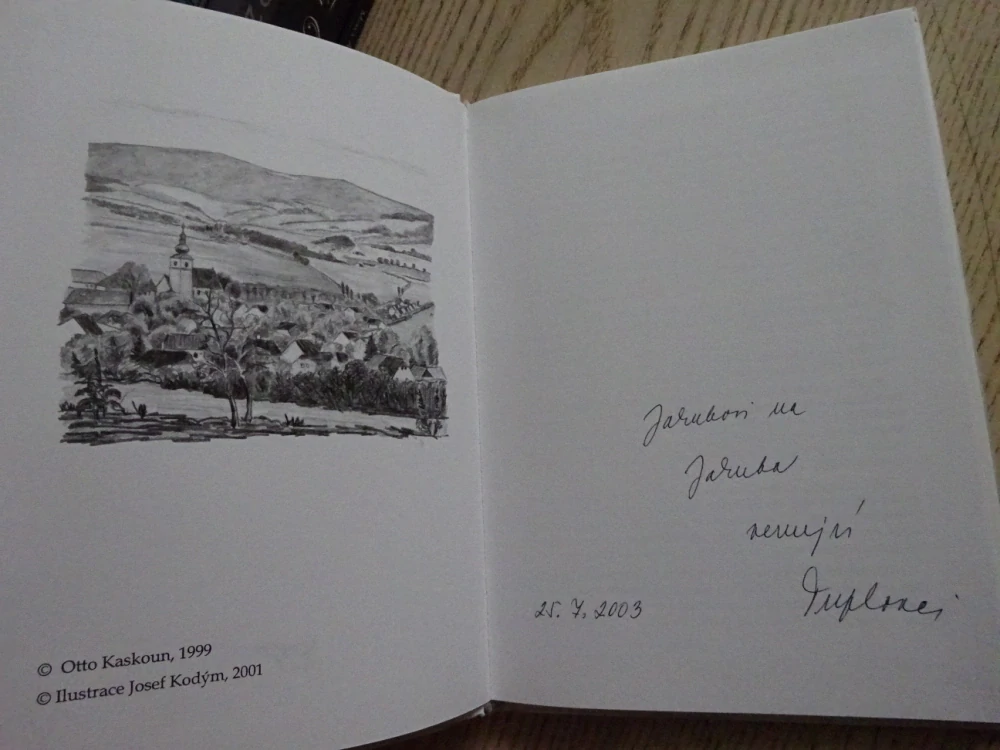 © Otto Kaskoun, 1999
© Ilustrace Josef Kodým, 2001
Jakubovi na
Jakuba
věnují
25. 7. 2003